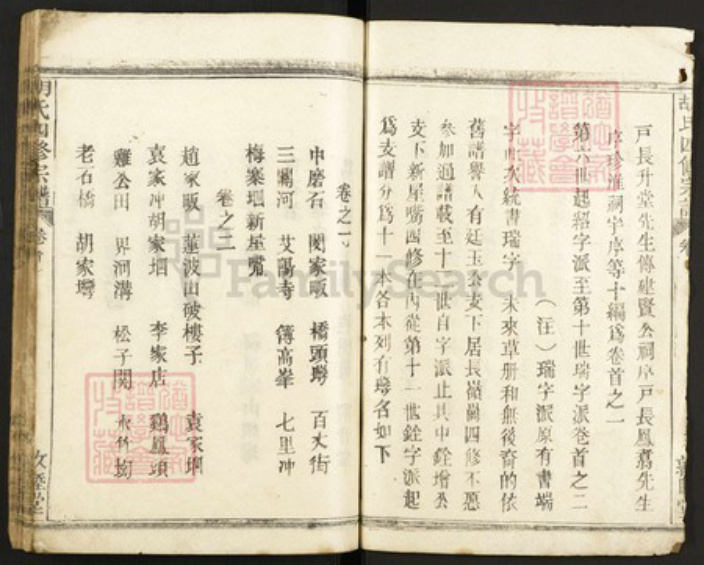 戸長升堂先生傳建賢公祠序戸長鳳翥先生
序珍淮祠字序等十編爲卷首之一
第六世起紹字派至第十世瑞字派卷首之二
（注）瑞字派原有書端
字此次統書瑞字 未來草册和無後裔的依
舊譜譽入有廷玉公支下居長嶺崗四修不愿
參加過譜載至十一世自字派止其中銓增公
支下新屋嘴四修在内從第十一世銓字派起
爲支譜分爲十一本各本列有塆名如下
卷之一
中磨石 閔家畈 橋頭塆 百丈街
三關河 艾陽寺 簰高峯 七里冲
梅寨堌新屋嘴
卷之二
趙家畈 蓮波山破樓子 袁家垌
袁家冲胡家堌 李家店 鷄鳳頭
雞公田 界河溝 松子関 水竹塆
老石橋 胡家塆
胡氏四修宗譜
卷首
FamilySearch